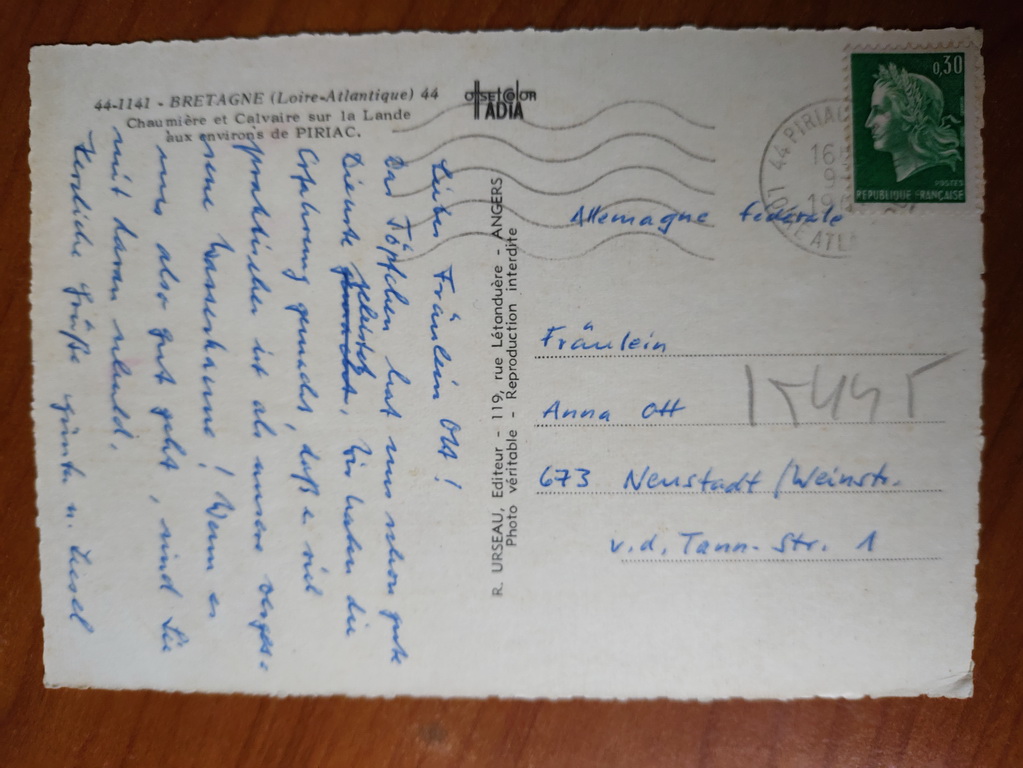 44-1141 - BRETAGNE (Loire-Atlantique) 44
Chaumière et Calvaire sur la Lande
aux environs de PIRIAC.
OFFSET COLOR
IADIA
Liebes Fräulein Ott!
Das Töpfchen hat uns schon gute
Dienste geleistet. Wir haben die
Erfahrung gemacht, daß es viel
praktischer ist als unsere verges-
sene Wasserkanne! Wenn es
uns also gut geht, sind Sie
mit daran schuld.
Herzliche Grüße Günter u. Liesel
R. URSEAU, Editeur - 119, rue Létanduère - ANGERS
Photo véritable - Reproduction interdite
44 PIRIAC
16
9
19
LOIRE ATL
0,30
POSTES
REPUBLIQUE FRANÇAISE
Allemagne fédérale
Fräulein
Anna Ott
15445
673 Neustadt/Weinstr.
v.d. Tann-Str. 1